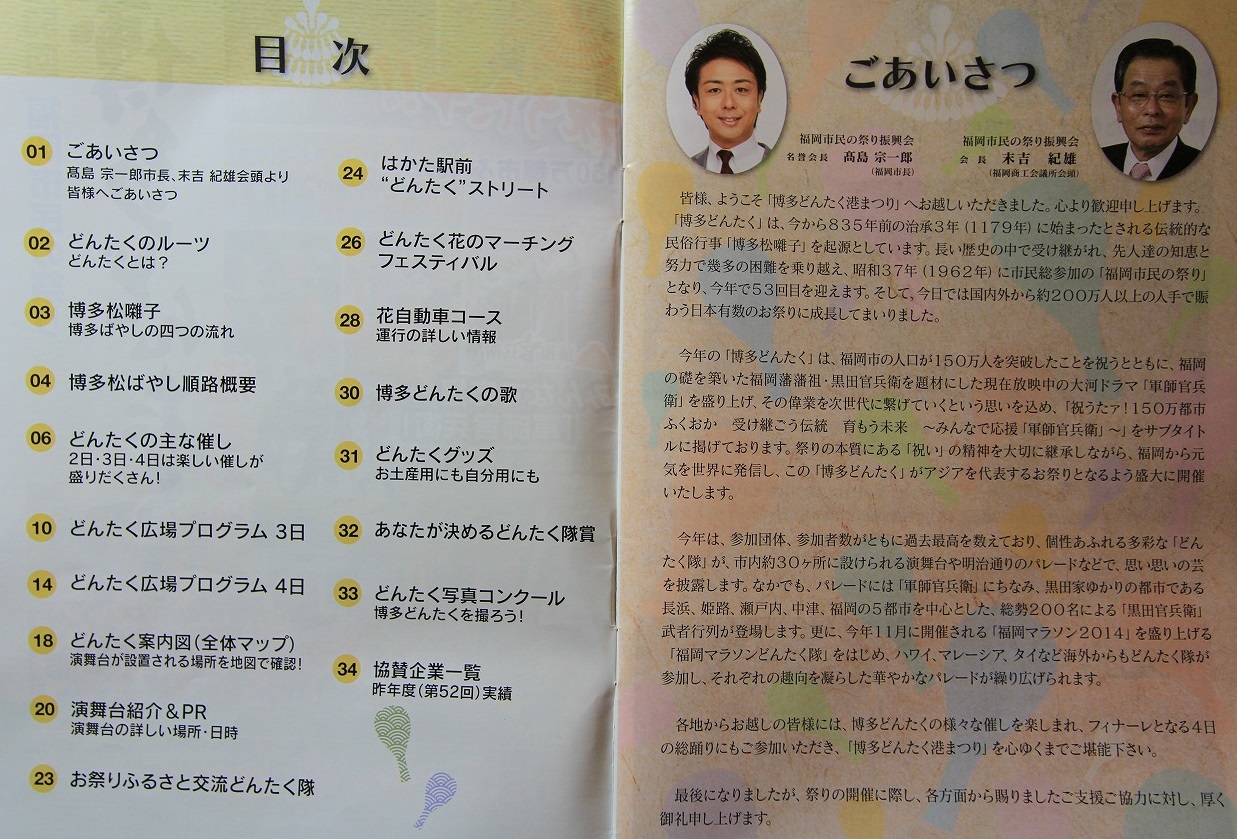 目 次
01 ごあいさつ
髙島 宗一郎市長、末吉 紀雄会頭より
皆様へごあいさつ
02 どんたくのルーツ
どんたくとは？
03 博多松囃子
博多ばやしの四つの流れ
04 博多松ばやし順路概要
06 どんたくの主な催し
2日・3日・4日は楽しい催しが
盛りだくさん！
10 どんたく広場プログラム 3日
14 どんたく広場プログラム 4日
18 どんたく案内図（全体マップ）
演舞台が設置される場所を地図で確認！
20 演舞台紹介＆PR
演舞台の詳しい場所・日時
23 お祭りふるさと交流どんたく隊
24 はかた駅前
“どんたく”ストリート
26 どんたく花のマーチング
フェスティバル
28 花自動車コース
運行の詳しい情報
30 博多どんたくの歌
31 どんたくグッズ
お土産用にも自分用にも
32 あなたが決めるどんたく隊賞
33 どんたく写真コンクール
博多どんたくを撮ろう！
34 協賛企業一覧
昨年度（第52回）実績
ごあいさつ
福岡市民の祭り振興会
名誉会長 髙島 宗一郎
（福岡市長）
福岡市民の祭り振興会
会 長 末吉 紀雄
（福岡商工会議所会頭）
皆様、ようこそ「博多どんたく港まつり」へお越しいただきました。心より歓迎申し上げます。
「博多どんたく」は、今から835年前の治承3年（1179年）に始まったとされる伝統的な
民俗行事「博多松囃子」を起源としています。長い歴史の中で受け継がれ、先人達の知恵と
努力で幾多の困難を乗り越え、昭和37年（1962年）に市民総参加の「福岡市民の祭り」
となり、今年で53回目を迎えます。そして、今日では国内外から約200万人以上の人手で賑
わう日本有数のお祭りに成長してまいりました。
今年の「博多どんたく」は、福岡市の人口が150万人を突破したことを祝うとともに、福岡
の礎を築いた福岡藩藩祖・黒田官兵衛を題材にした現在放映中の大河ドラマ「軍師官兵
衛」を盛り上げ、その偉業を次世代に繋げていくという思いを込め、「祝うたァ！150万都市
ふくおか 受け継ごう伝統 育もう未来 ～みんなで応援「軍師官兵衛」～」をサブタイト
ルに掲げております。祭りの本質にある「祝い」の精神を大切に継承しながら、福岡から元
気を世界に発信し、この「博多どんたく」がアジアを代表するお祭りとなるよう盛大に開催
いたします。
今年は、参加団体、参加者数がともに過去最高を数えており、個性あふれる多彩な「どん
たく隊」が、市内約30ヶ所に設けられる演舞台や明治通りのパレードなどで、思い思いの芸
を披露します。なかでも、パレードには「軍師官兵衛」にちなみ、黒田家ゆかりの都市である
長浜、姫路、瀬戸内、中津、福岡の5都市を中心とした、総勢200名による「黒田官兵衛」
武者行列が登場します。更に、今年11月に開催される「福岡マラソン2014」を盛り上げる
「福岡マラソンどんたく隊」をはじめ、ハワイ、マレーシア、タイなど海外からもどんたく隊が
参加し、それぞれの趣向を凝らした華やかなパレードが繰り広げられます。
各地からお越しの皆様には、博多どんたくの様々な催しを楽しまれ、フィナーレとなる4日
の総踊りにもご参加いただき、「博多どんたく港まつり」を心ゆくまでご堪能下さい。
最後になりましたが、祭りの開催に際し、各方面から賜りましたご支援ご協力に対し、厚く
御礼申し上げます。